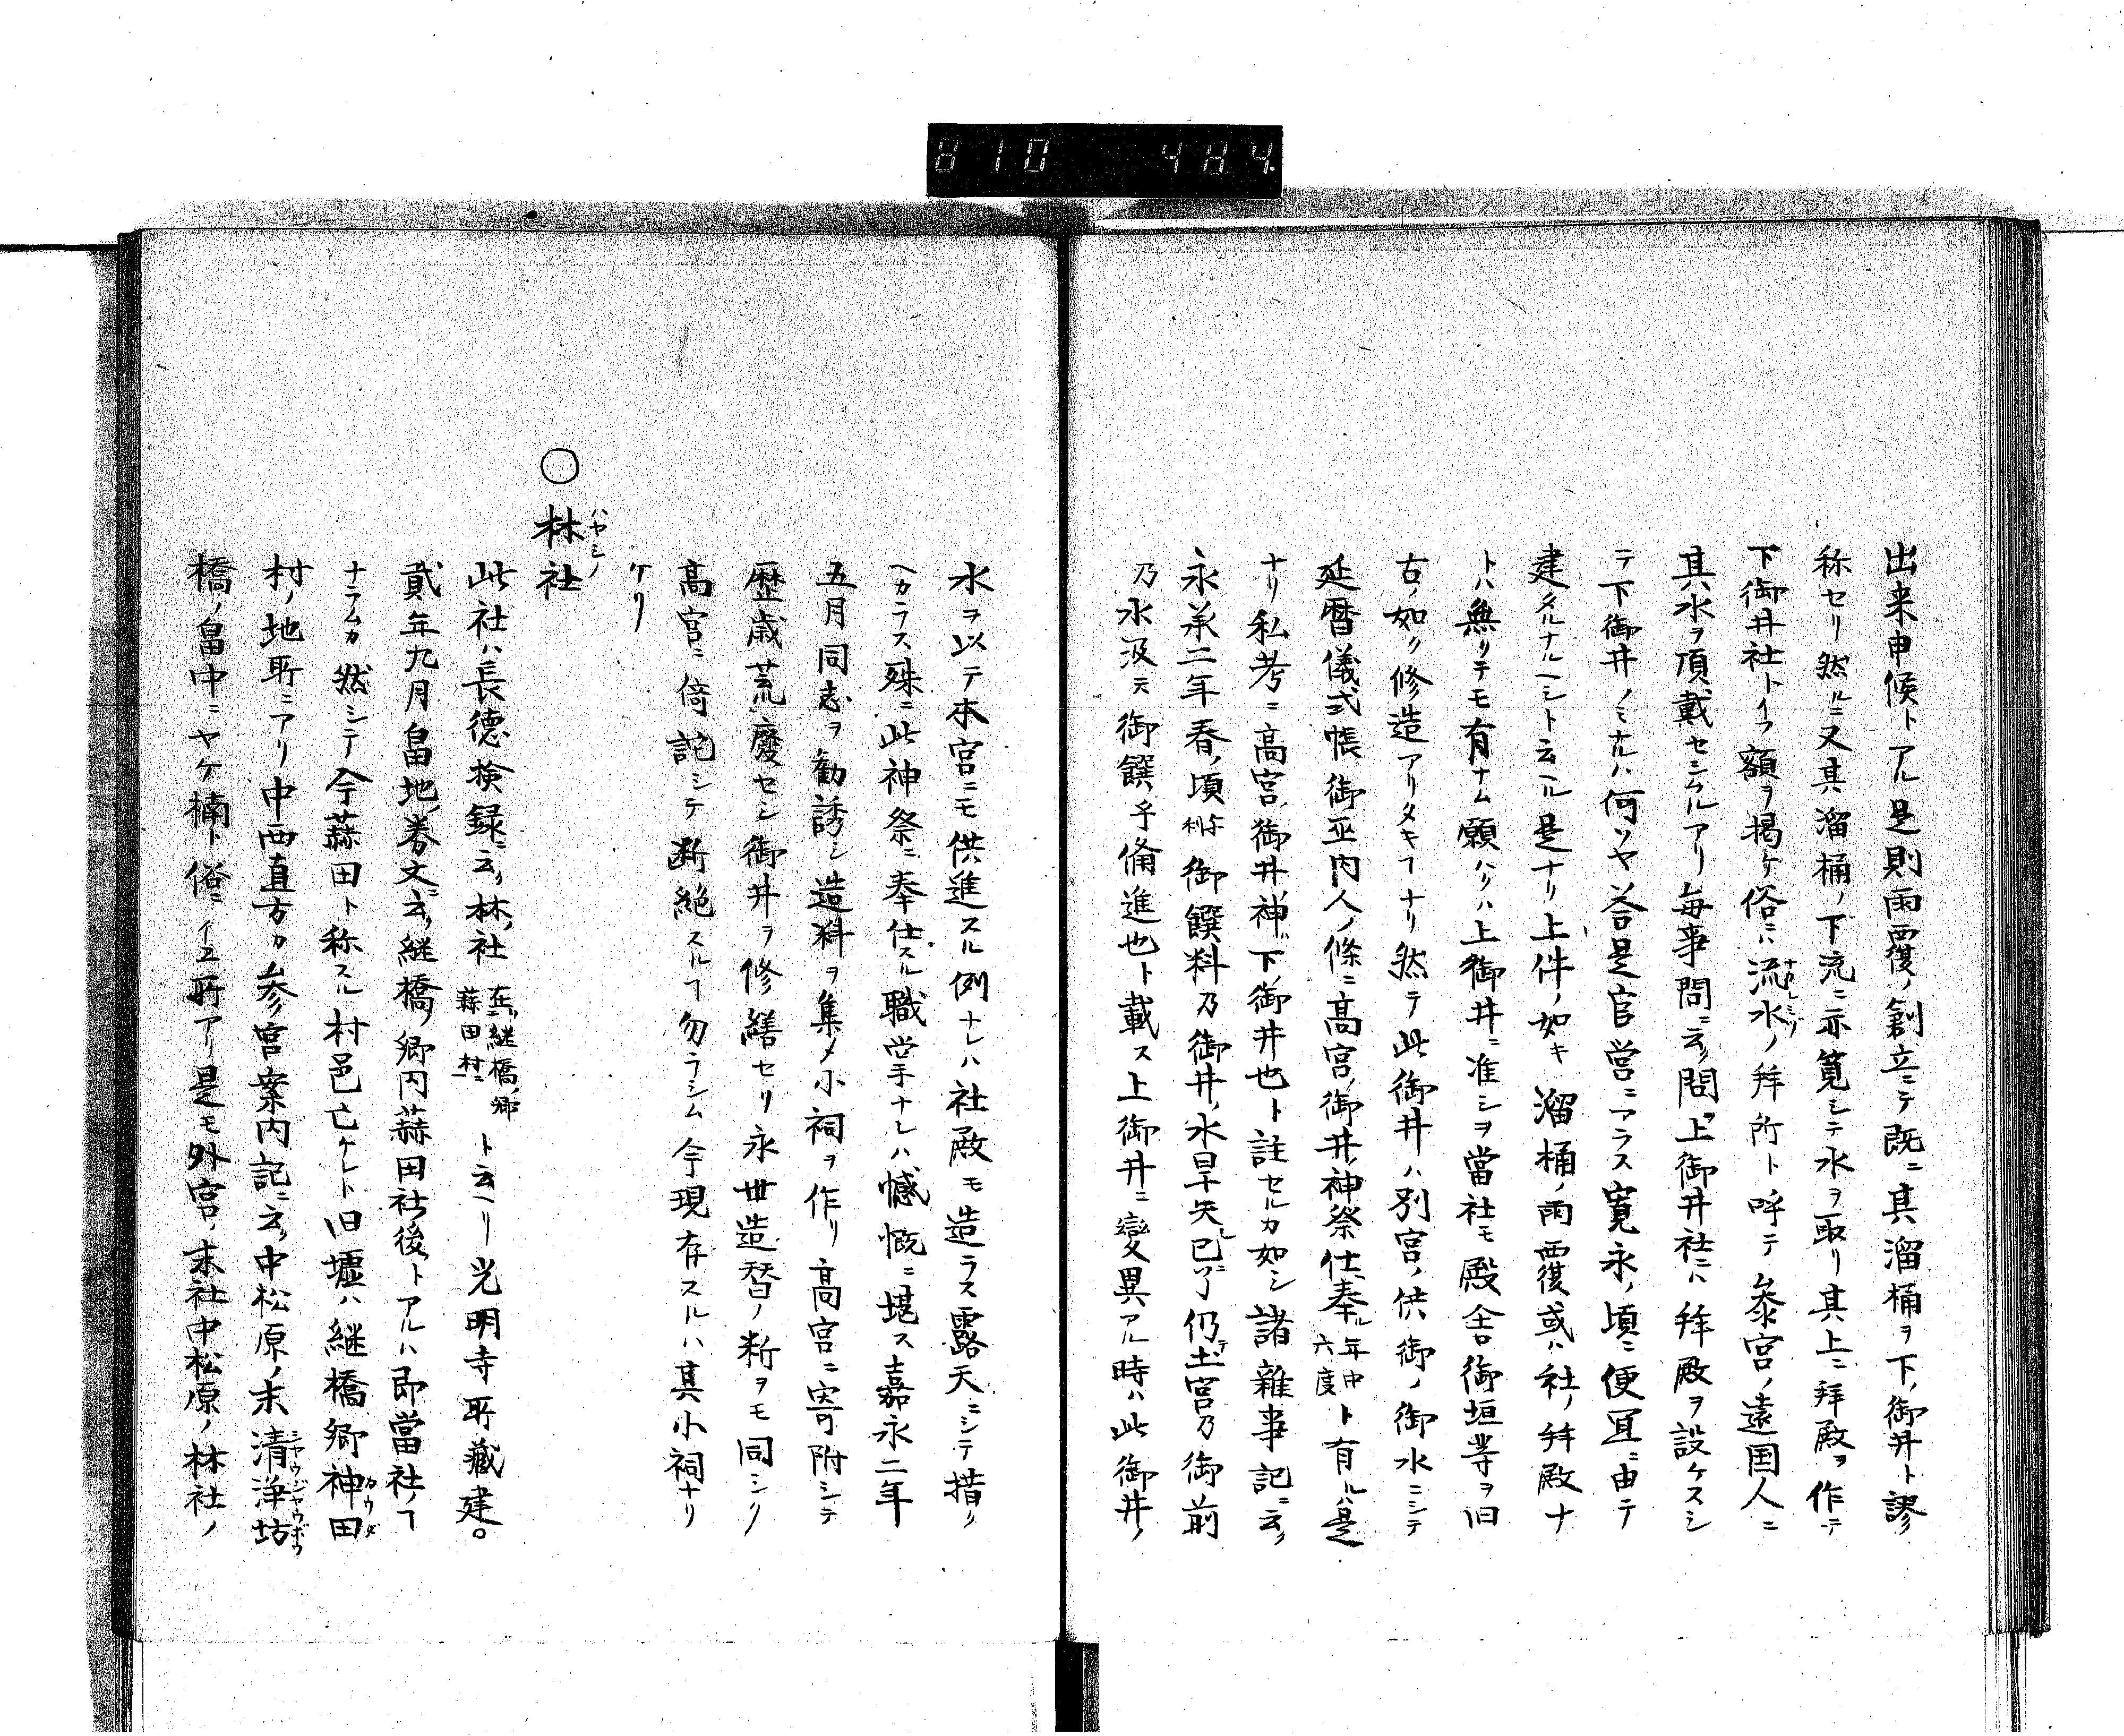 810 484
出来申候トアル是則雨覆ノ創立ニテ既ニ其溜桶ヲ下ノ御井ト謬
称セリ然ルニ又其溜桶ノ下流ニ示筧シテ水ヲ取リ其上ニ拜殿ヲ作テ
下御井社トイフ額ヲ掲ケ俗ニハ流水ノ拜所ト呼テ参宮ノ遠国人ニ
其水ヲ頂戴セシムルアリ毎事問ニ云ク問フ上御井社ニハ拜殿ヲ設ケスシ
テ下御井ノミナルハ何ソヤ答是官営ニアラス寛永ノ頃ニ便宜ニ由テ
建タルナルヘシト云ヘル是ナリ上件ノ如キ溜桶ノ雨覆或ハ社ノ拜殿ナ
トハ無リテモ有ナム願ハクハ上御井ニ准シヲ當社モ殿舎御垣等ヲ旧
古ノ如ク修造アリタキヿナリ然テ此御井ハ別宮ノ供御ノ御水ニシテ
延暦儀式帳御巫内人ノ條ニ高宮ノ御井神祭仕奉ル年中六度ト有ルハ是
ナリ私考ニ高宮ノ御井神ハ下ノ御井也ト註セルカ如シ諸雜事記ニ云ク
永承二年春ノ頃御饌料乃御井ノ水旱失已了仍テ土宮乃御前
乃水汲天御饌乎備進也ト載ス上御井ニ變異アル時ハ此御井ノ
水ヲ以テ本宮ニモ供進スル例ナレハ社殿モ造ラス露天ニシテ措ク
ヘカラス殊ニ此神祭ニ奉仕スル職掌ナレハ憾慨ニ堪ス嘉永二年
五月同志ヲ勧誘シ造料ヲ集メ小祠ヲ作リ高宮ニ寄附シテ
歴歳荒廢セシ御井ヲ修繕セリ永世造替ノ断ヲモ同シク
高宮ニ倚詫シテ断絶スルヿ勿ラシム今現存スルハ其小祠ナリ
ケリ
○林社 ハヤシノ
此社ハ長徳検録ニ云ク林ノ社 在二継橋ノ郷蒜田村一ニト云ヘリ光明寺所藏建
貳年九月畠地ノ券文ニ云ク継橋ノ郷内蒜田社後トアルハ即當社ノヿ
ナラムカ然シテ今蒜田ト称スル村邑亡ケレト旧墟ハ継橋郷神田 カウダ
村ノ地所ニアリ中西直方カ参宮案内記ニ云ク中松原ノ末清浄坊 シヤウジヤウボウ
橋ノ畠中ニヤケ楠ト俗ニイヱ所アリ是モ外宮ノ末社中松原ノ林社ノ